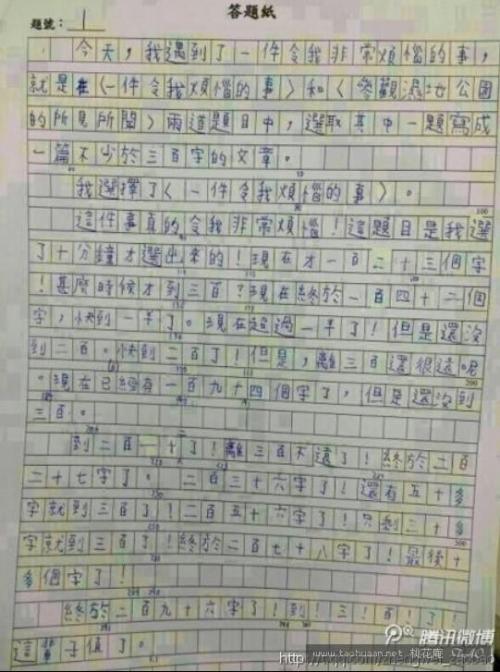 答題紙
題號：1
今天，我遇到了一件令我非常煩惱的事，
就是在〈一件令我煩惱的事〉和〈參觀濕地公園
的所見所聞〉兩道題目中，選取其中一題寫成
一篇不少於三百字的文章。
我選擇了〈一件令我煩惱的事〉。
這件事真的令我非常煩惱！這題目是我選
了十分鐘才選出來的！現在才一百二十三個字
！甚麼時候才到三百？現在終於一百四十二個
字，快到一半了。現在超過一半了！但是還沒
到二百。快到二百了！但是，離三百還很遠呢
。現在已經有一百九十四個字了，但是還沒到
三百。
到二百一十了！離三百不遠了！終於二百
二十七字了。二百三十六字了！還有五十多
字就到三百了！二百五十六字了！只到三十多
字就到三百了！終於二百七十八字了！最後十
多個字了！
終於二百九十六字了！到！三！百！了！
這輩子值了。
腾讯微博